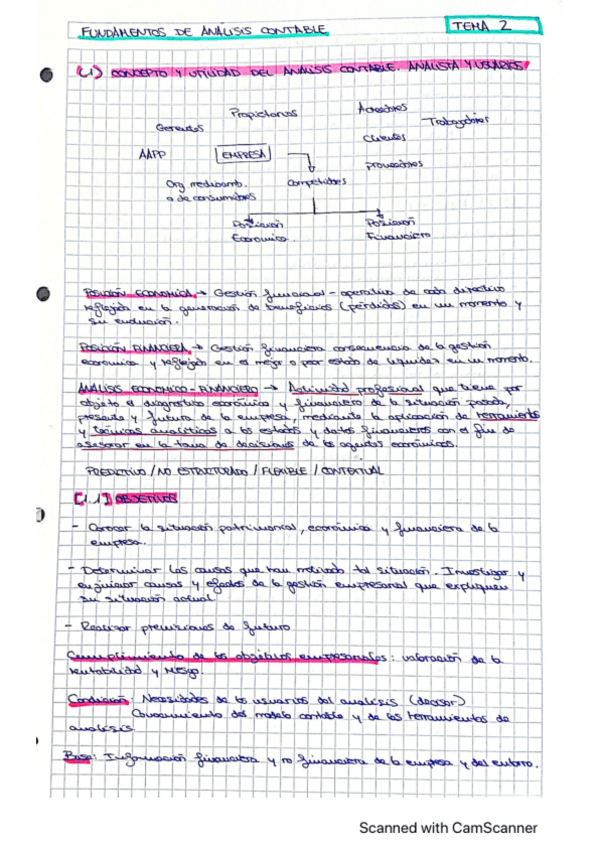 FUNDAMENTOS DE ANÁLISIS CONTABLE
TEMA 2
(1) CONCEPTO Y UTILIDAD DEL ANÁLISIS CONTABLE. ANALISTA Y USUARIOS
Propietarios
Acreedores
Gerentes
Trabajadores
Clientes
AAPP
EMPRESA
proveedores
Org medioamb.
o de consumidores
Competidores
Posición
Económica
Posición
Financiera
POSICIÓN ECONÓMICA → Gestión funcional-operativa de cada directivo
reflejada en la generación de beneficios (pérdidas) en un momento y
su evolución.
POSICIÓN FINANCIERA → Gestión financiera consecuencia de la gestión
económica y reflejada en el mejor o peor estado de liquidez en un momento.
ANÁLISIS ECONÓMICO-FINANCIERO → Actividad profesional que tiene por
objeto el diagnóstico económico y financiero de la situación pasada,
presente y futura de la empresa, mediante la aplicación de herramientas
y técnicas analíticas a los estados y datos financieros con el fin de
asesorar en la toma de decisiones de los agentes económicos.
PREDICTIVO / NO ESTRUCTURADO / FLEXIBLE / CONTEXTUAL
[1.1] OBJETIVOS
- Conocer la situación patrimonial, económica y financiera de la
empresa.
- Determinar las causas que han motivado tal situación. Investigar y
enjuiciar causas y efectos de la gestión empresarial que expliquen
su situación actual
- Realizar previsiones de futuro
Cumplimiento de los objetivos empresariales: valoración de la
rentabilidad y riesgo.
Condición: Necesidades de los usuarios del análisis (decisor)
Conocimiento del modelo contable y de las herramientas de
análisis.
Base: Información financiera y no financiera de la empresa y del entorno.
Scanned with CamScanner